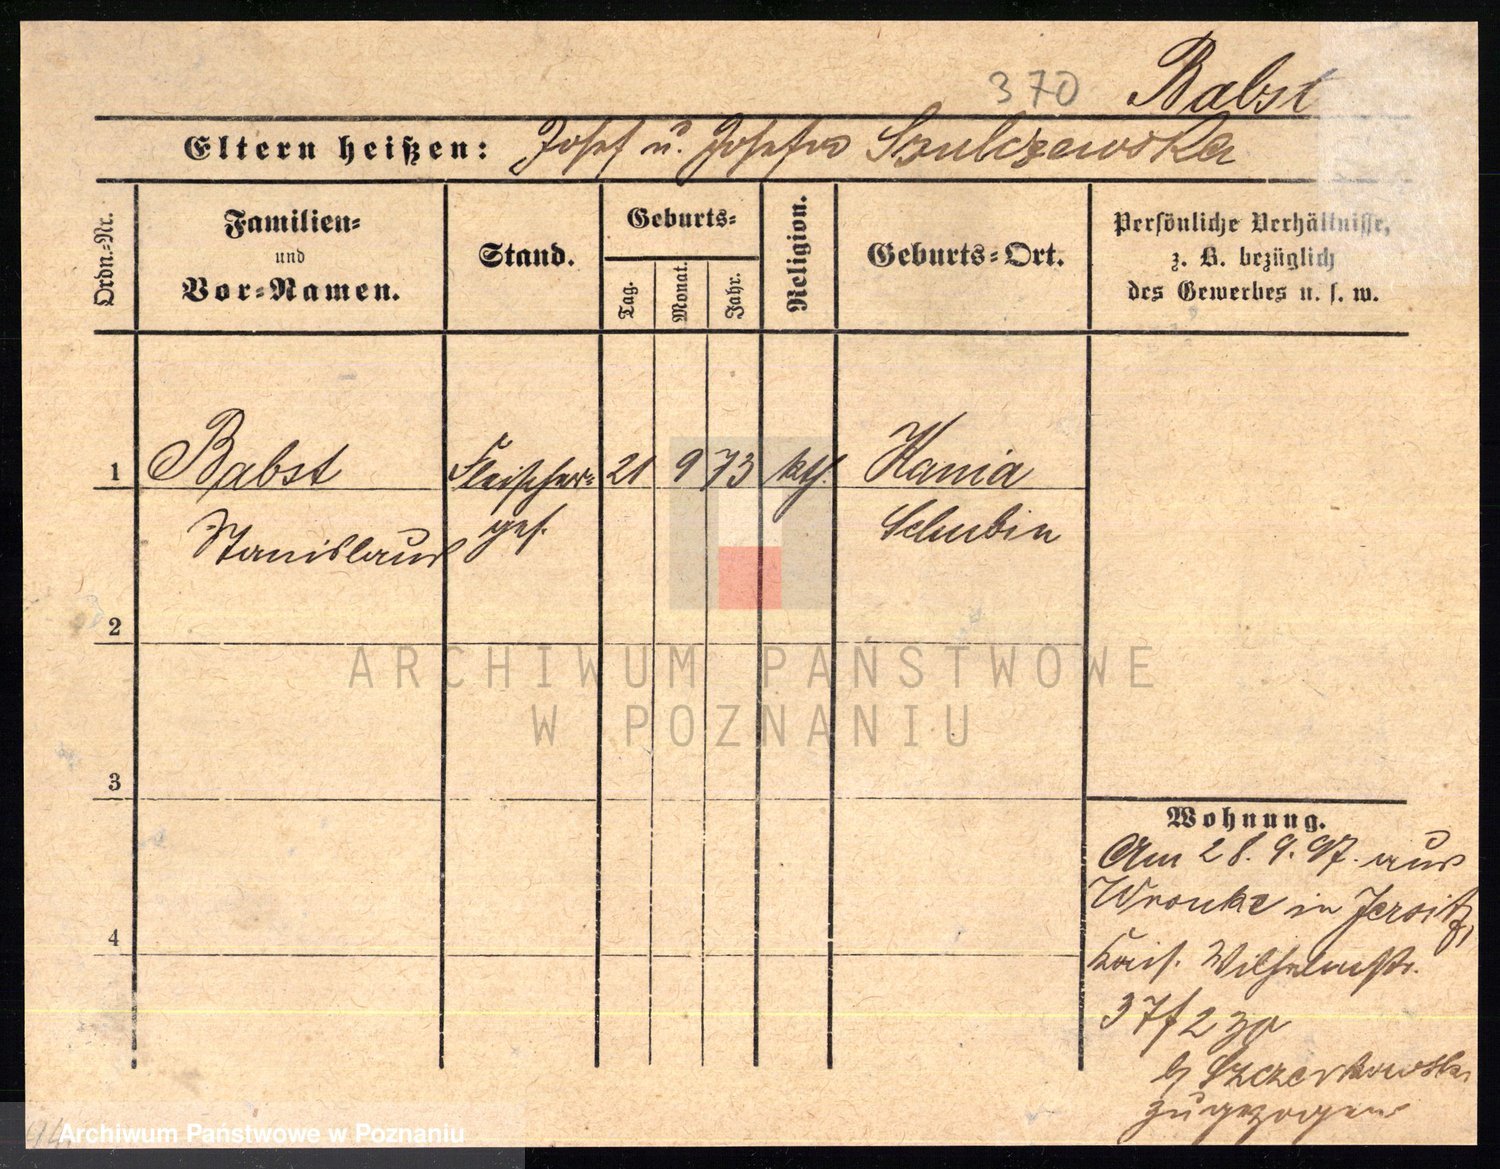 370 Babst
Eltern heißen: Josef u. Josefa Szulczewska
Ordn.-Nr.
Familien-
und
Vor-Namen.
Stand.
Geburts-
Tag.
Monat.
Jahr.
Religion.
Geburts-Ort.
Persönliche Verhältnisse,
z. B. bezüglich
des Gewerbes u. s. w.
1 Babst Fleischer- 21 9 73 kth. Hania
Stanislaus ges. Schubin
2
ARCHIWUM PAŃSTWOWE
W POZNANIU
3
Wohnung.
Am 28.9.97. aus
Wronke in Jersitz,
4
Kais. Wilhelmstr.
37
b/ Szczerkowski
zugezogen
94.
Archiwum Państwowe w Poznaniu